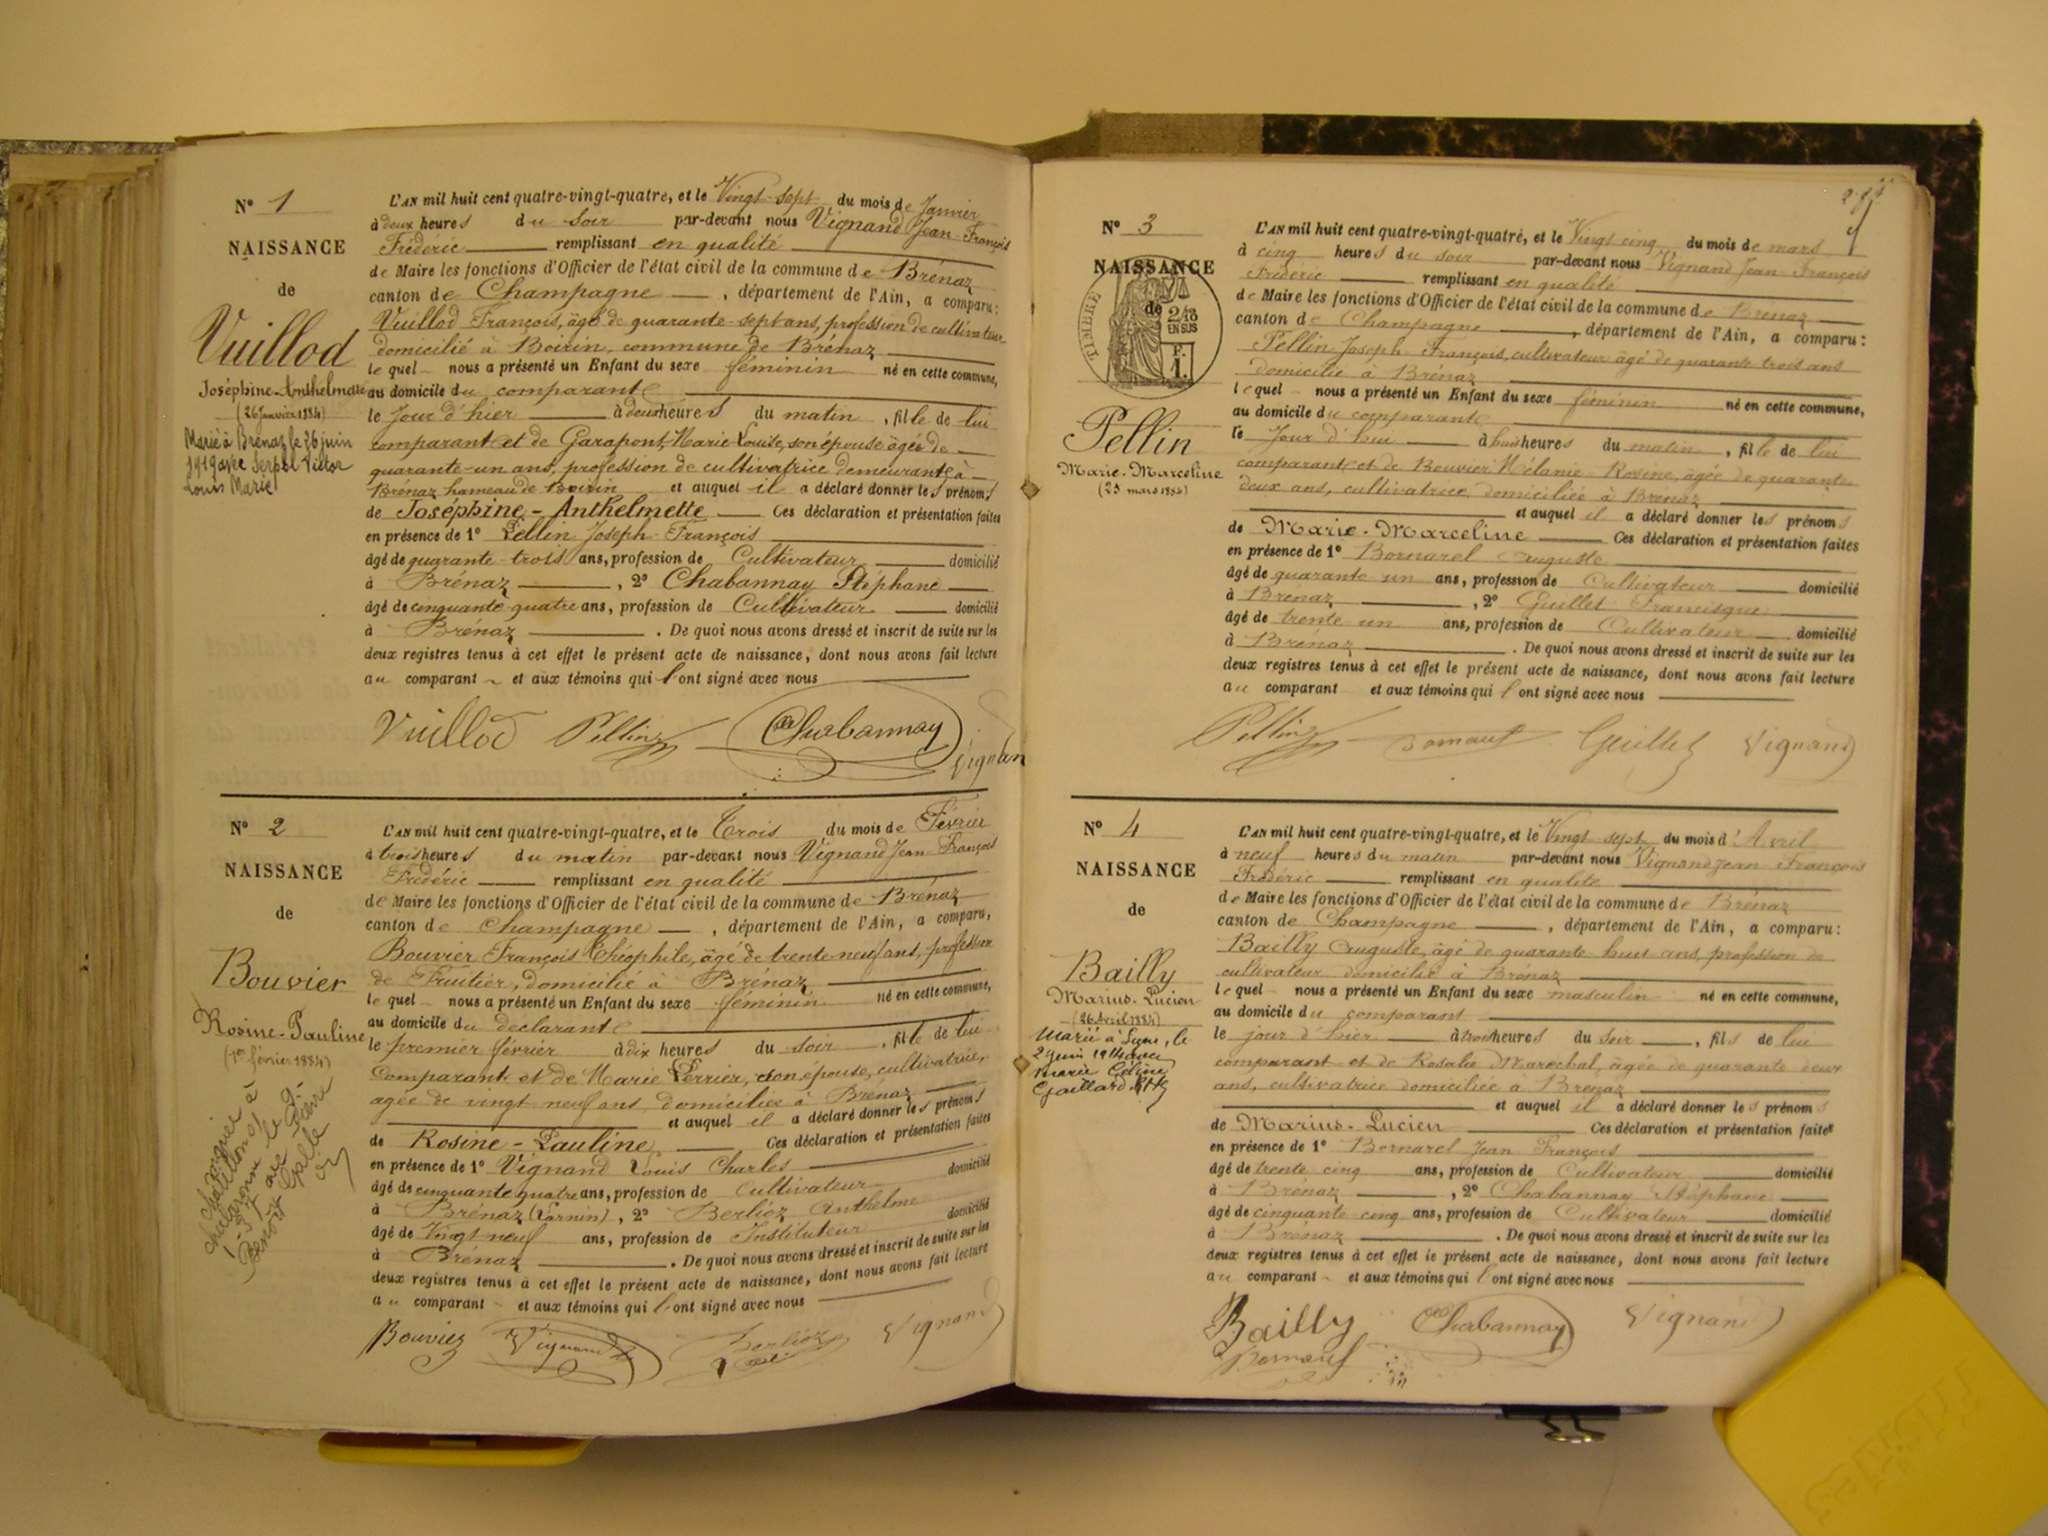 N° 1
NAISSANCE
de
Vuillod
Joséphine-Anthelmette
(26 Janvier 1884)
Marié à Brénaz le 26 juin
1919 avec Serpol Victor
Louis Marie
L'AN mil huit cent quatre-vingt-quatre, et le Vingt-sept du mois de Janvier
à deux heures du soir par-devant nous Vignand Jean-François
Frédéric remplissant en qualité
de Maire les fonctions d'Officier de l'état civil de la commune de Brénaz
canton de Champagne, département de l'Ain, a comparu:
Vuillod François, âgé de quarante-sept ans, profession de cultivateur
domicilié à Boirin, commune de Brénaz
lequel nous a présenté un Enfant du sexe féminin né en cette commune,
au domicile du comparant
le Jour d'hier à deux heures du matin, fille de lui
comparant et de Garapont, Marie Louise, son épouse âgée de
quarante-un ans, profession de cultivatrice demeurante à
Brénaz hameau de Boirin et auquel il a déclaré donner les prénoms
de Joséphine-Anthelmette Ces déclaration et présentation faites
en présence de 1° Pellin Joseph-François
âgé de quarante-trois ans, profession de Cultivateur domicilié
à Brénaz, 2° Chabannay Stéphane
âgé de cinquante-quatre ans, profession de Cultivateur domicilié
à Brénaz. De quoi nous avons dressé et inscrit de suite sur les
deux registres tenus à cet effet le présent acte de naissance, dont nous avons fait lecture
au comparant et aux témoins qui l'ont signé avec nous
Vuillod Pellin Chabannay Vignand
N° 2
NAISSANCE
de
Bouvier
Rosine-Pauline
(1er février 1884)
L'AN mil huit cent quatre-vingt-quatre, et le Trois du mois de Février
à trois heures du matin par-devant nous Vignand Jean François
Frédéric remplissant en qualité
de Maire les fonctions d'Officier de l'état civil de la commune de Brénaz
canton de Champagne, département de l'Ain, a comparu,
Bouvier François Théophile, âgé de trente neuf ans, profession
de Fruitier, domicilié à Brénaz
lequel nous a présenté un Enfant du sexe féminin né en cette commune,
au domicile du déclarant
le premier février à dix heures du soir, fille de lui
Comparant et de Marie Perrier, son épouse, cultivatrice,
agée de vingt neuf ans, domiciliée à Brénaz
et auquel il a déclaré donner les prénoms
de Rosine-Pauline Ces déclaration et présentation faites
en présence de 1° Vignand Louis Charles
âgé de cinquante quatre ans, profession de cultivateur domicilié
à Brénaz, 2° Berlioz Anthelme
âgé de Vingt neuf ans, profession de Instituteur domicilié
à Brénaz. De quoi nous avons dressé et inscrit de suite sur les
deux registres tenus à cet effet le présent acte de naissance, dont nous avons fait lecture
au comparant et aux témoins qui l'ont signé avec nous
Bouvier Vignand Berlioz Vignand
N° 3
NAISSANCE
de
TIMBRE
2/10
EN SUS
F.
1.
Pellin
Marie-Marceline
(25 mars 1884)
L'AN mil huit cent quatre-vingt-quatre, et le Vingt cinq du mois de mars
à cinq heures du soir par-devant nous Vignand Jean-François
Frédéric remplissant en qualité
de Maire les fonctions d'Officier de l'état civil de la commune de Brénaz
canton de Champagne, département de l'Ain, a comparu:
Pellin Joseph-François, cultivateur âgé de quarante trois ans
domicilié à Brénaz
lequel nous a présenté un Enfant du sexe féminin né en cette commune,
au domicile du comparant
le Jour d'hui à huit heures du matin, fille de lui
comparant et de Bouvier Mélanie-Rosine, âgée de quarante
deux ans, cultivatrice, domiciliée à Brénaz
et auquel il a déclaré donner les prénoms
de Marie-Marceline Ces déclaration et présentation faites
en présence de 1° Bornarel Auguste
âgé de quarante un ans, profession de Cultivateur domicilié
à Brénaz, 2° Guillet Francisque
âgé de trente un ans, profession de Cultivateur domicilié
à Brénaz. De quoi nous avons dressé et inscrit de suite sur les
deux registres tenus à cet effet le présent acte de naissance, dont nous avons fait lecture
au comparant et aux témoins qui l'ont signé avec nous
Pellin Guillet Vignand
N° 4
NAISSANCE
de
Bailly
Marius-Lucien
(26 Avril 1884)
Marié à Lyon, le
2 juin 1914 avec
Marie Céline
Gaillard
L'AN mil huit cent quatre-vingt-quatre, et le Vingt-sept du mois d'Avril
à neuf heures du matin par-devant nous Vignand Jean François
Frédéric remplissant en qualité
de Maire les fonctions d'Officier de l'état civil de la commune de Brénaz
canton de Champagne, département de l'Ain, a comparu:
Bailly Auguste, âgé de quarante huit ans, profession de
cultivateur domicilié à Brénaz
lequel nous a présenté un Enfant du sexe masculin né en cette commune,
au domicile du comparant
le jour d'hier à trois heures du soir, fils de lui
comparant et de Rosalie Marechal, âgée de quarante deux
ans, cultivatrice domiciliée à Brénaz
et auquel il a déclaré donner les prénoms
de Marius-Lucien Ces déclaration et présentation faites
en présence de 1° Bornarel Jean François
âgé de trente cinq ans, profession de Cultivateur domicilié
à Brénaz, 2° Chabannay Stéphane
âgé de cinquante-cinq ans, profession de Cultivateur domicilié
à Brénaz. De quoi nous avons dressé et inscrit de suite sur les
deux registres tenus à cet effet le présent acte de naissance, dont nous avons fait lecture
au comparant et aux témoins qui l'ont signé avec nous
Bailly Chabannay Vignand